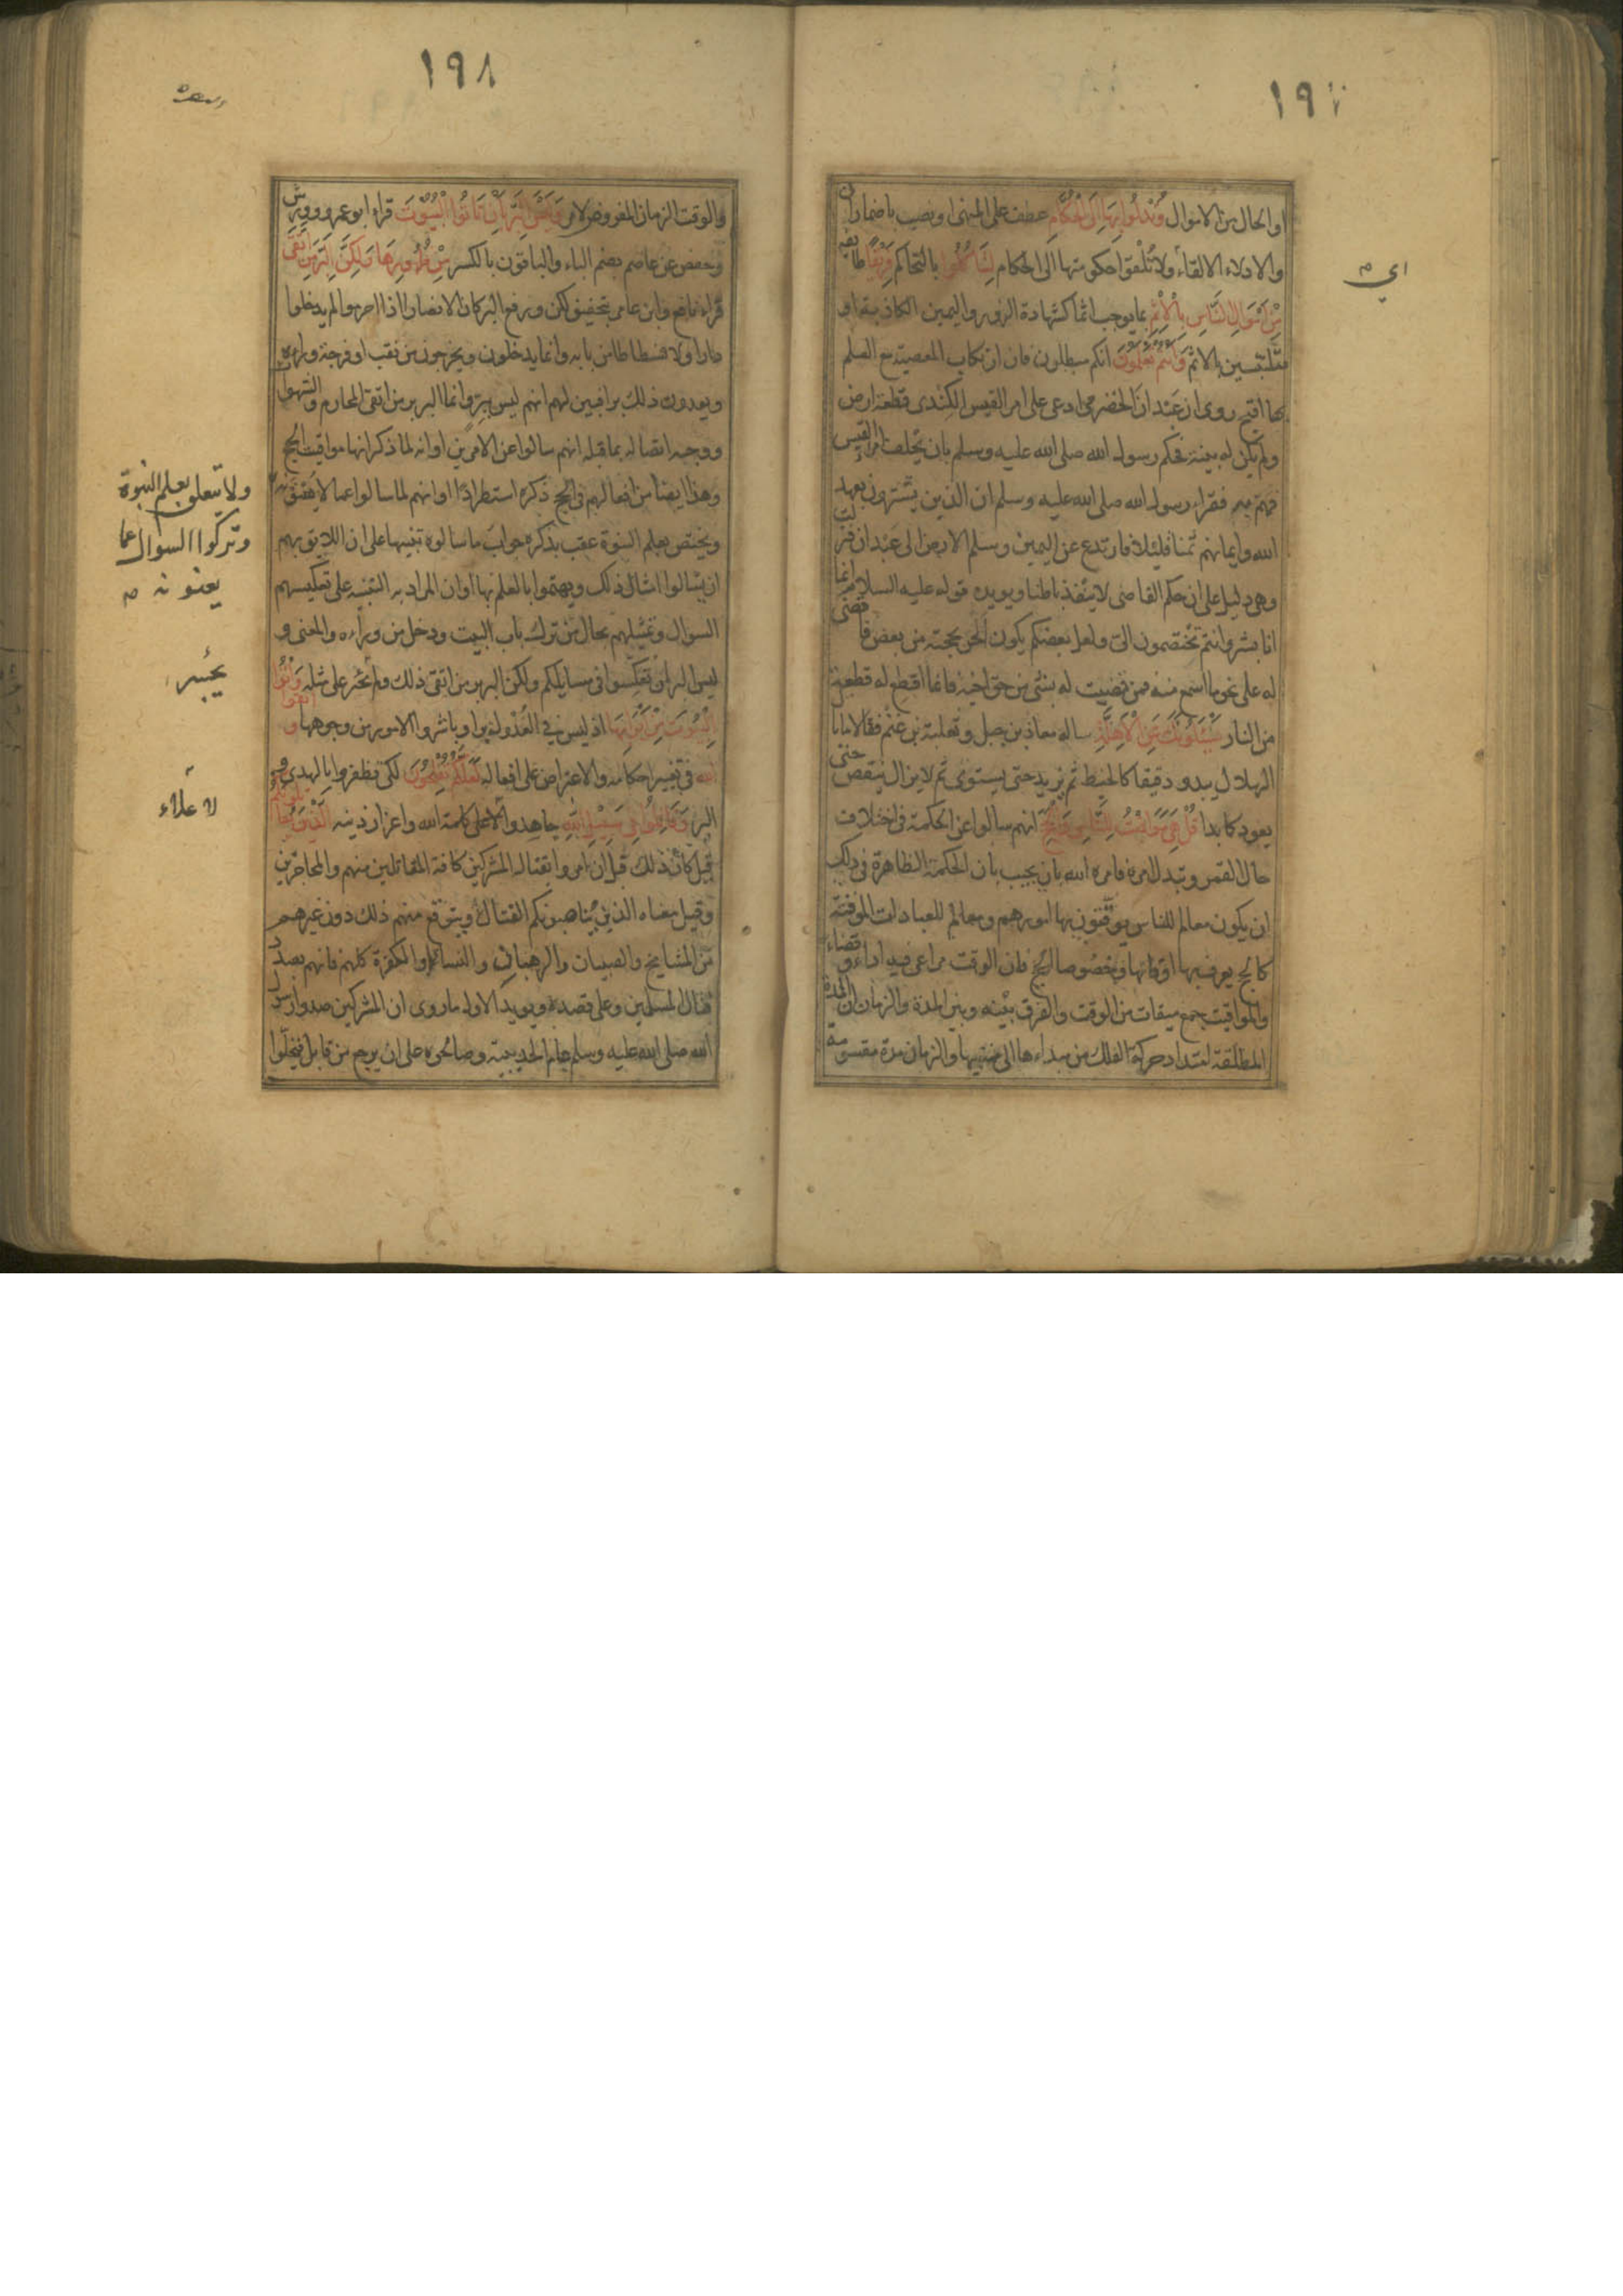 ١٩٧
او الحال من الاموال وَتُدْلُوا بِهَا اِلَى الْحُكَّامِ عطف على المنهى او نصب باضمار ان
والادلاء الالقاء ولا تُلقوا حكومتها الى الحكام لِتَأْكُلُوا بالتحاكم فَرِيقًا طايفة
مِنْ اَمْوَالِ النَّاسِ بِالْاِثْمِ بما يوجب اثما كشهادة الزور واليمين الكاذبة او
متلبسين بالاثم وَاَنْتُمْ تَعْلَمُونَ انكم مبطلون فان ارتكاب المعصية مع العلم
بها اقبح روى ان عَبْدان الحضرمى ادعى على امر القيس الكِندى قطعة ارض
ولم يكن له بينة فحكم رسول الله صلى الله عليه وسلم بان يحلف امرء القيس
فهم به فقراء رسول الله صلى الله عليه وسلم ان الذين يشترون بعهد
الله وايمانهم ثمنا قليلا فارتدع عن اليمين وسلم الارض الى عَبْدان فنزلت
وهى دليل على ان حكم القاضى لا ينفذ باطنا ويويده قوله عليه السلام انما
انا بشر وانتم تختصمون الىّ ولعل بعضكم يكون اَلحن بحجته من بعض فاقضى
له على نحو ما اسمع منه فمن قضيت له بشئ من حق اخيه فانما اقطع له قطعة
من النار يَسْئَلُونَكَ عَنِ الْاَهِلَّةِ ساله معاذ بن جبل وثعلبة بن غَنْم فقالا ما بال
الهلال يبدو دقيقا كالخيط ثم يزيد حتى يستوى ثم لا يزال ينقص حتى
يعود كما بدا قُلْ هِىَ مَوَاقِيتُ لِلنَّاسِ وَالْحَجِّ انهم سالوا عن الحكمة فى اختلاف
حال القمر وتبدل امره فامره الله بان يجيب بان الحكمة الظاهرة فى ذلك
ان يكون معالم للناس يوقّتون بها امورهم ومعالم للعبادات الموقتة
كالحج يعرف بها اوقاتها وخصوصا الحج فان الوقت مراعى فيه اداء وقضاء
والمواقيت جمع ميقات من الوقت والفرق بينه وبين المدة والزمان ان المدة
المطلقة امتداد حركة الفلك من مبداءها الى منتهيها والزمان مدة مقسومة
اى م
١٩٨
والوقت الزمان المفروض لامر وَلَيْسَ الْبِرُّ بِاَنْ تَاْتُوا الْبُيُوتَ قراء ابو عمرو وورش
وحفص عن عاصم بضم الباء والباقون بالكسر مِنْ ظُهُورِهَا وَلَكِنَّ الْبِرَّ مَنِ اتَّقَى
قراء نافع وابن عامر بتخفيف لكن ورفع البر كان الانصار اذا احرموا لم يدخلوا
دارا ولا فسطاطا من بابه وانما يدخلون ويخرجون من نقب او فرجة وراءه
ويعدون ذلك برا فبين لهم انهم ليس ببر وانما البر بر من اتقى المحارم والشهوات
ووجه اتصاله بما قبله انهم سالوا عن الامرين او انه لما ذكر انها مواقيت الحج
وهذا ايضا من افعالهم فى الحج ذكره استطرادا او انهم لما سالوا عما لا يعنونه
ويختص بعلم النبوة عقب بذكره جواب ما سالوه تنبيها على ان اللايق بهم
ان يسالوا امثال ذلك ويهتموا بالعلم بها او ان المراد به التنبيه على تعكيسهم
السؤال وتمثيلهم بحال من ترك باب البيت ودخل من وراءه والمعنى و
ليس البر ان تعكسوا فى مسايلكم ولكن البر بر من اتقى ذلك ولم يجسر على مثله وَاْتُوا
الْبُيُوتَ مِنْ اَبْوَابِهَا اذ ليس فى العُدْول بر او باشروا الامور من وجوهها وَاتَّقُوا
الله فى تغيير احكامه والاعتراض على افعاله لَعَلَّكُمْ تُفْلِحُونَ لكى تظفروا بالهدى و
البر وَقَاتِلُوا فِى سَبِيلِ اللهِ جاهدوا لاعلى كلمة الله واعزاز دينه الَّذِينَ يُقَاتِلُونَكُمْ
قيل كان ذلك قبل ان امروا بقتال المشركين كافة المقاتلين منهم والمحاجزين
وقيل معناه الذين يُناصبونكم القتال ويتوقع منهم ذلك دون غيرهم
من المشايخ والصبيان والرهبان والنساء او الكفرة كلهم فانهم بصدد
قتال المسلمين وعلى قصده ويويد الاول ما روى ان المشركين صدوا رسول
الله صلى الله عليه وسلم عام الحديبية وصالحوه على ان يرجع من قابل فيخلّوا
ولا يتعلق بعلم النبوة
وتركوا السوال عما
يعنونه م
يجسر
لاعلاء